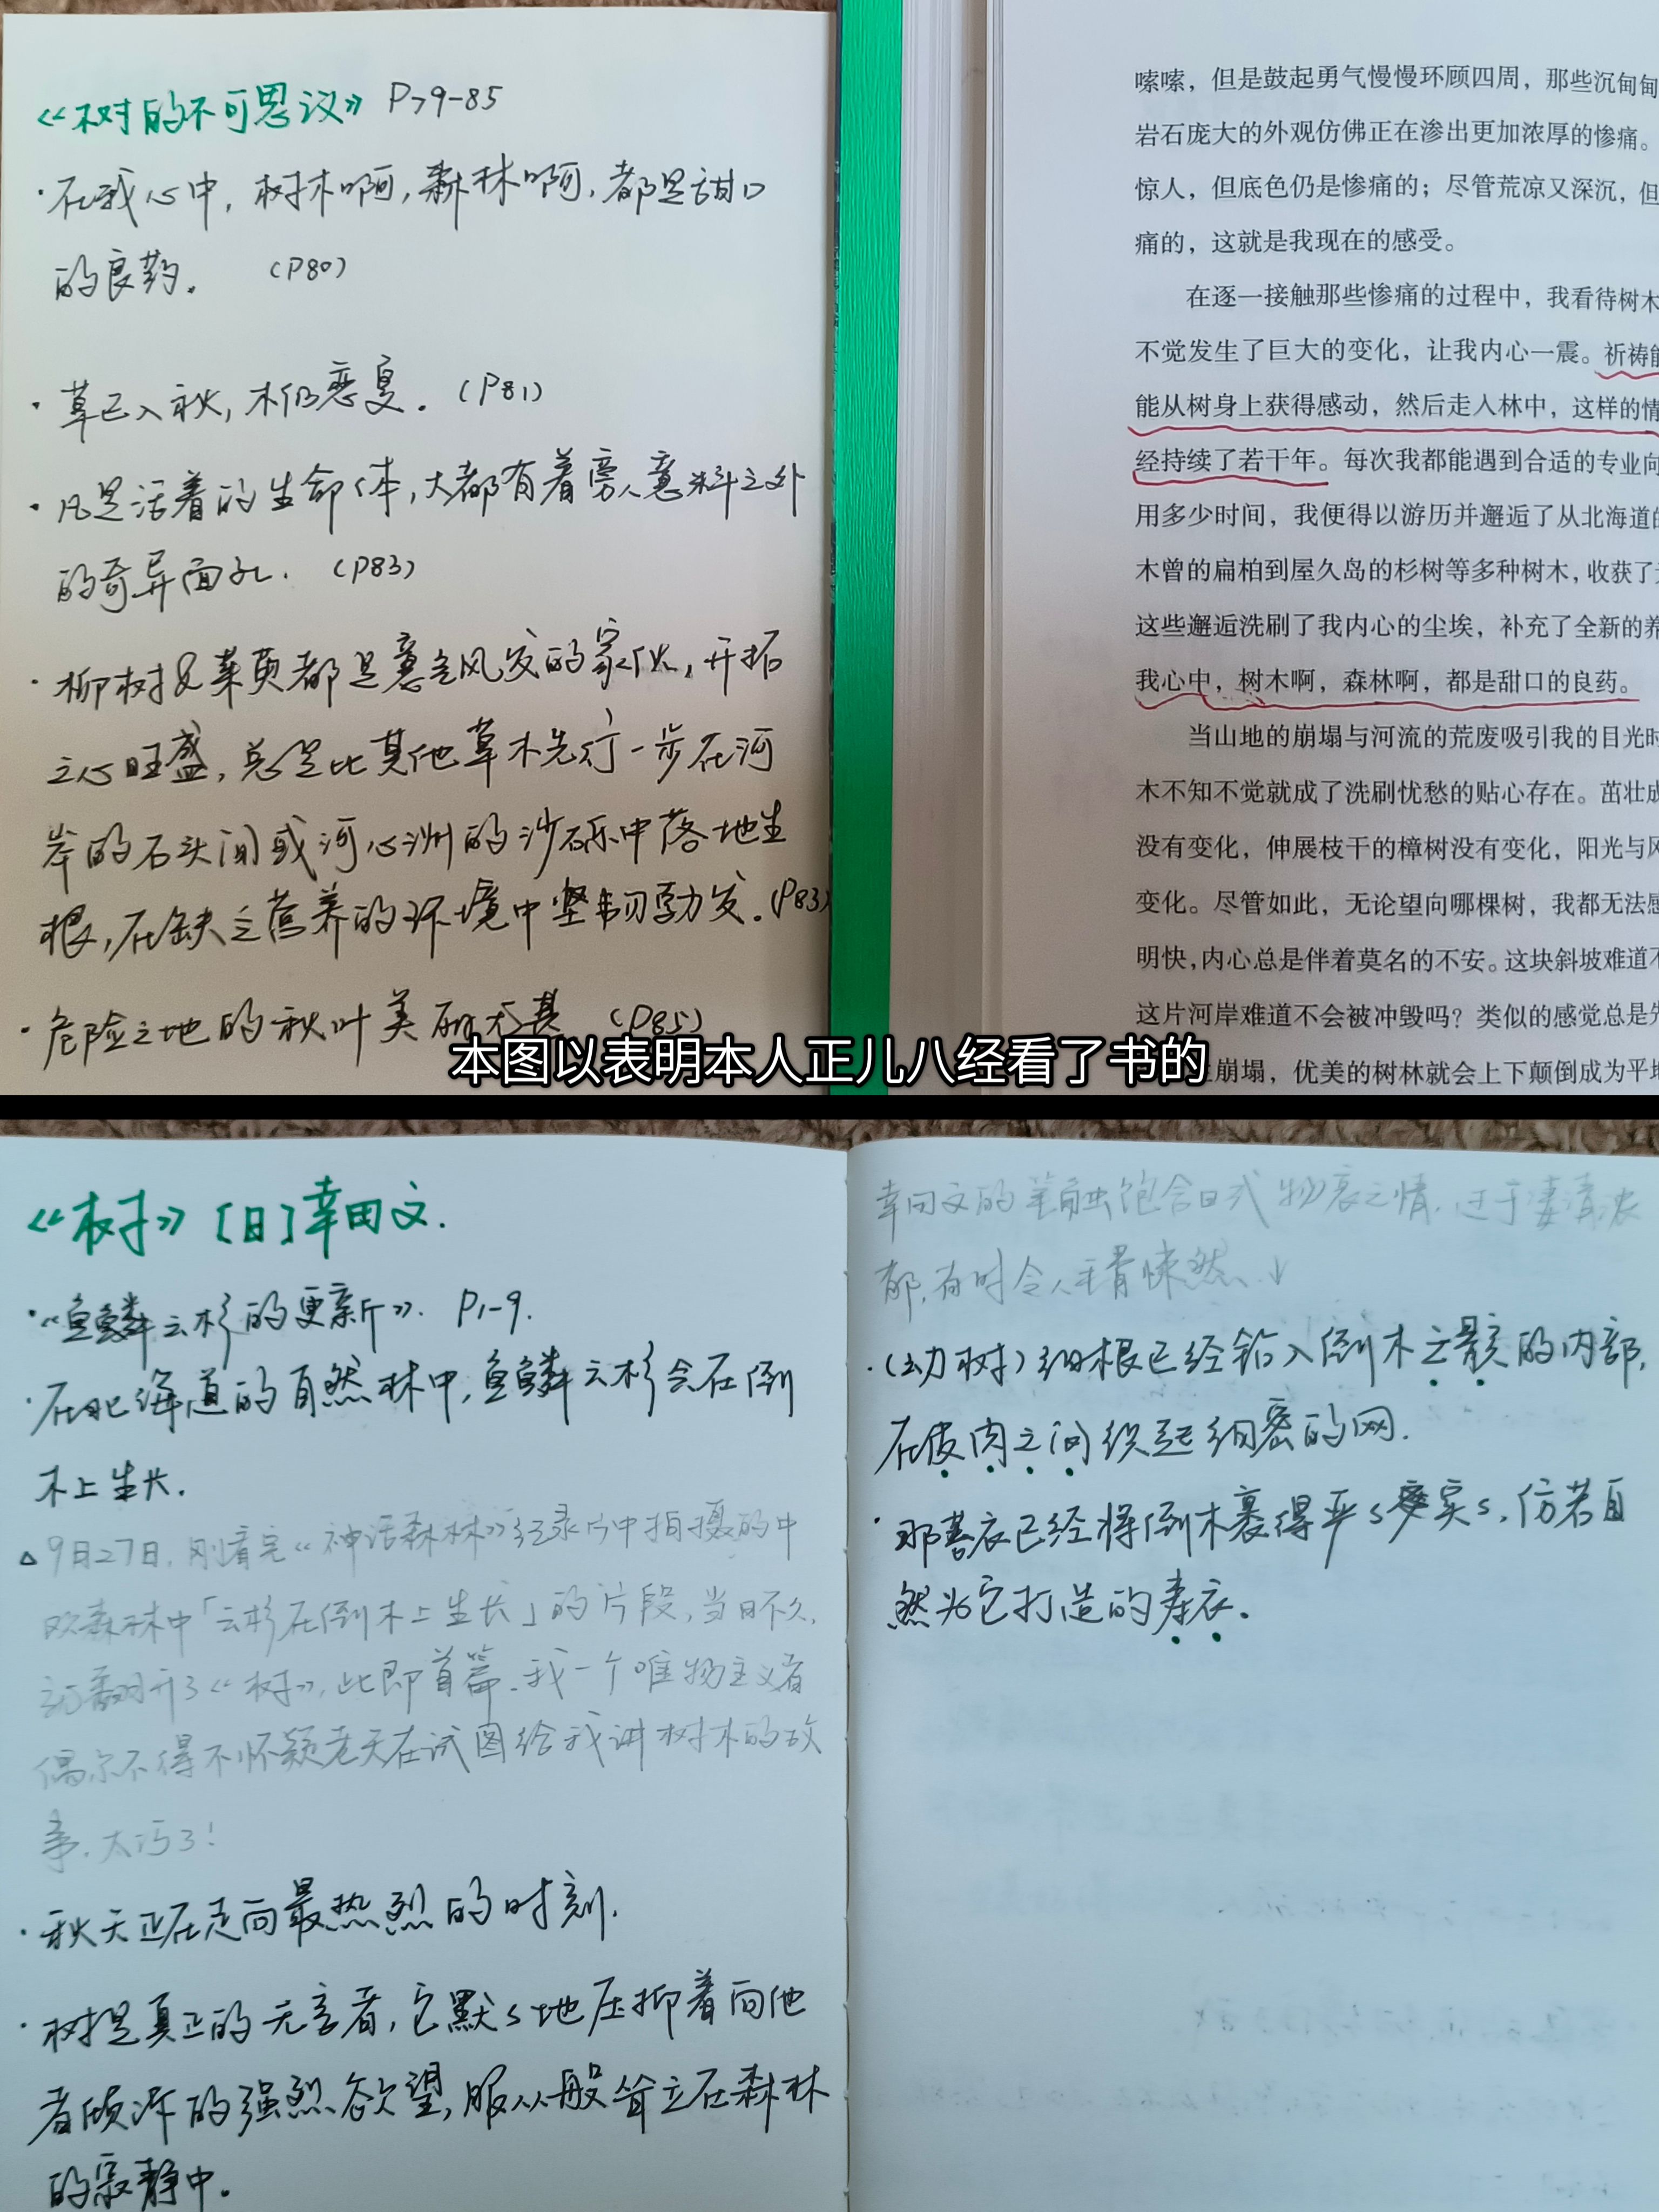 《树的不可思议》 P79-85
·在我心中，树木啊，森林啊，都是甜口
的良药。 （P80）
·草已入秋，木仍恋夏。（P81）
·凡是活着的生命体，大都有着旁人意料之外
的奇异面孔。（P83）
·柳树及茱萸都是意气风发的家伙，开拓
之心旺盛，总是比其他草木先行一步在河
岸的石头间或河心洲的沙砾中落地生
根，在缺乏营养的环境中坚韧勃发。（P83）
·危险之地的秋叶美丽无甚 （P85）
嗦嗦，但是鼓起勇气慢慢环顾四周，那些沉甸甸
岩石庞大的外观仿佛正在渗出更加浓厚的惨痛。
惊人，但底色仍是惨痛的；尽管荒凉又深沉，但
痛的，这就是我现在的感受。
在逐一接触那些惨痛的过程中，我看待树木
不觉发生了巨大的变化，让我内心一震。祈祷能
能从树身上获得感动，然后走入林中，这样的情
经持续了若干年。每次我都能遇到合适的专业向
用多少时间，我便得以游历并邂逅了从北海道的
木曾的扁柏到屋久岛的杉树等多种树木，收获了
这些邂逅洗刷了我内心的尘埃，补充了全新的养
我心中，树木啊，森林啊，都是甜口的良药。
当山地的崩塌与河流的荒废吸引我的目光时
木不知不觉就成了洗刷忧愁的贴心存在。茁壮成
没有变化，伸展枝干的樟树没有变化，阳光与风
变化。尽管如此，无论望向哪棵树，我都无法感
明快，内心总是伴着莫名的不安。这块斜坡难道不
这片河岸难道不会被冲毁吗？类似的感觉总是先
崩塌，优美的树林就会上下颠倒成为平地
本图以表明本人正儿八经看了书的
《树》［日］幸田文.
·《鱼鳞云杉的更新》. P1-9.
·在北海道的自然林中，鱼鳞云杉会在倒
木上生长.
△9月27日，刚看完《神话森林》纪录片中拍摄的中
欧森林中「云杉在倒木上生长」的片段，当日不久，
就翻开了《树》，此即首篇.我一个唯物主义者
偶尔不得不怀疑老天在试图给我讲树木的故
事.太巧了！
·秋天正在走向最热烈的时刻.
·树是真正的无言者，它默々地压抑着向他
者倾诉的强烈欲望，服从般耸立在森林
的寂静中.
幸田文的笔触饱含日式物哀之情，过于凄清浓
郁，有时令人毛骨悚然.↓
·（幼树）细根已经钻入倒木之骸的内部，
在皮肉之间织起细密的网.
·那苔衣已经将倒木裹得严々实々，仿若自
然为它打造的寿衣.